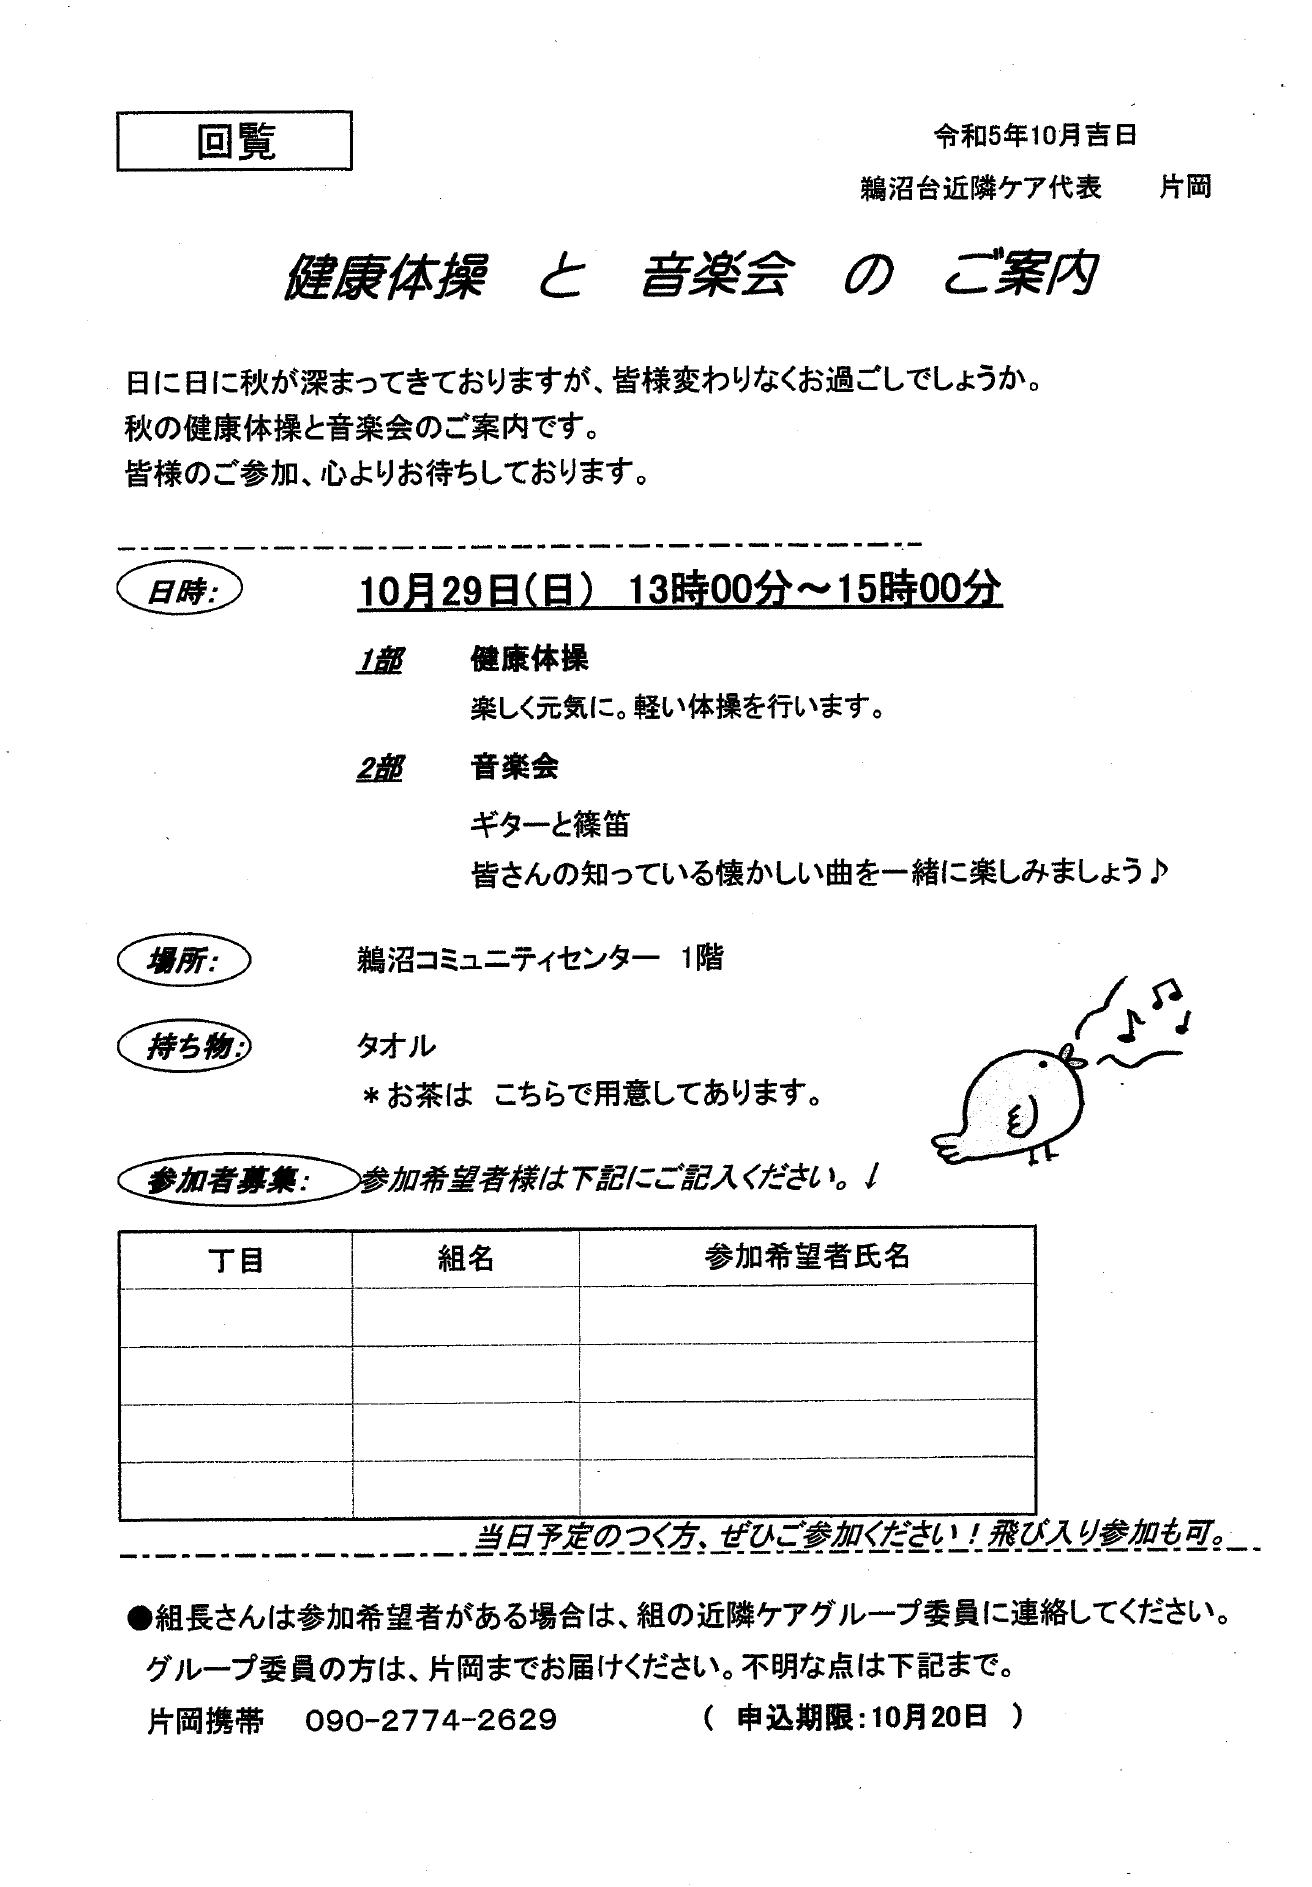 回覧
令和5年10月吉日
鵜沼台近隣ケア代表　　片岡
健康体操　と　音楽会　の　ご案内
日に日に秋が深まってきておりますが、皆様変わりなくお過ごしでしょうか。
秋の健康体操と音楽会のご案内です。
皆様のご参加、心よりお待ちしております。
日時:　10月29日(日)　13時00分～15時00分
1部　健康体操
楽しく元気に。軽い体操を行います。
2部　音楽会
ギターと篠笛
皆さんの知っている懐かしい曲を一緒に楽しみましょう♪
場所:　鵜沼コミュニティセンター　1階
持ち物:　タオル
＊お茶は　こちらで用意してあります。
参加者募集:　参加希望者様は下記にご記入ください。↓
丁目　組名　参加希望者氏名
当日予定のつく方、ぜひご参加ください！飛び入り参加も可。
●組長さんは参加希望者がある場合は、組の近隣ケアグループ委員に連絡してください。
グループ委員の方は、片岡までお届けください。不明な点は下記まで。
片岡携帯　090-2774-2629　（　申込期限:10月20日　）